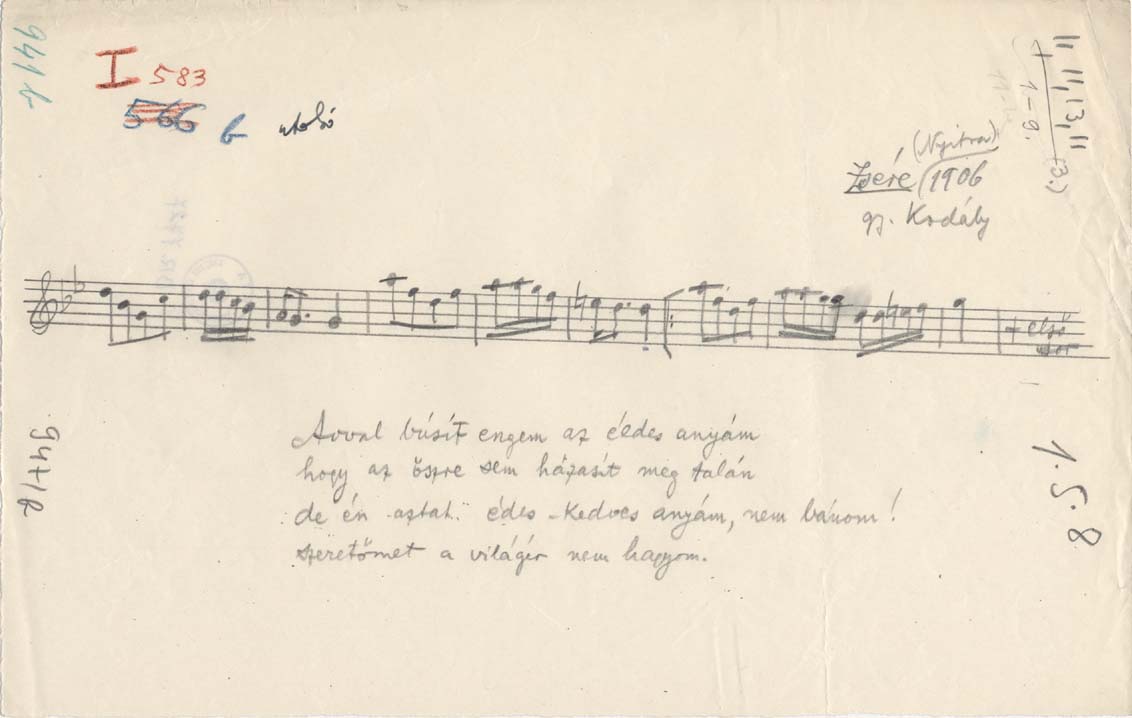 941b
I 583
566 b utolsó
11, 11, 13, 11
1-9. (3.)
(Nyitra)
Zséré 1906
gy. Kodály
+ első
sor
Avval búsít engem az éldes anyám
hogy az őszre sem házasít meg talán
:de én aztat: édes-kedves anyám, nem bánom!
szeretőmet a világér nem hagyom.
1.5.8